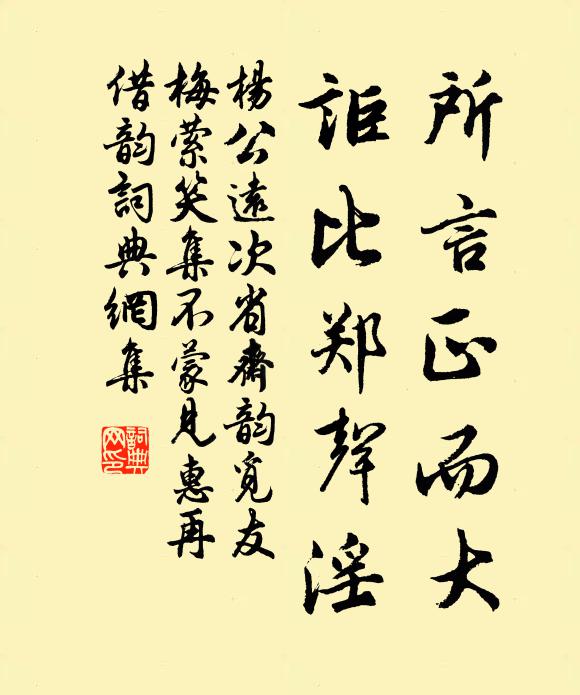 所言正而大
詎比郑聲淫
楊公遠次省齋韵覓友
梅索笑集不蒙見惠再
借韵詞典網集
詞典
网印